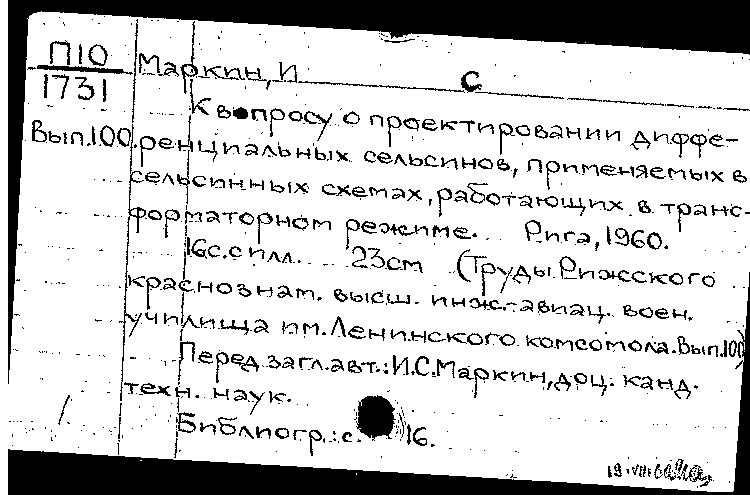 П10
1731
Вып.100.
Маркин, И
С
К вопросу о проектировании диффе-
ренциальных сельсинов, применяемых в
сельсинных схемах, работающих в транс-
форматорном режиме. Рига, 1960.
16с. с илл. 23см (Труды Рижского
краснознам. высш. инж.-авиац. воен.
училища им. Ленинского комсомола. Вып.100)
Перед загл. авт.: И.С. Маркин, доц. канд.
техн. наук.
Библиогр.: с. 16.